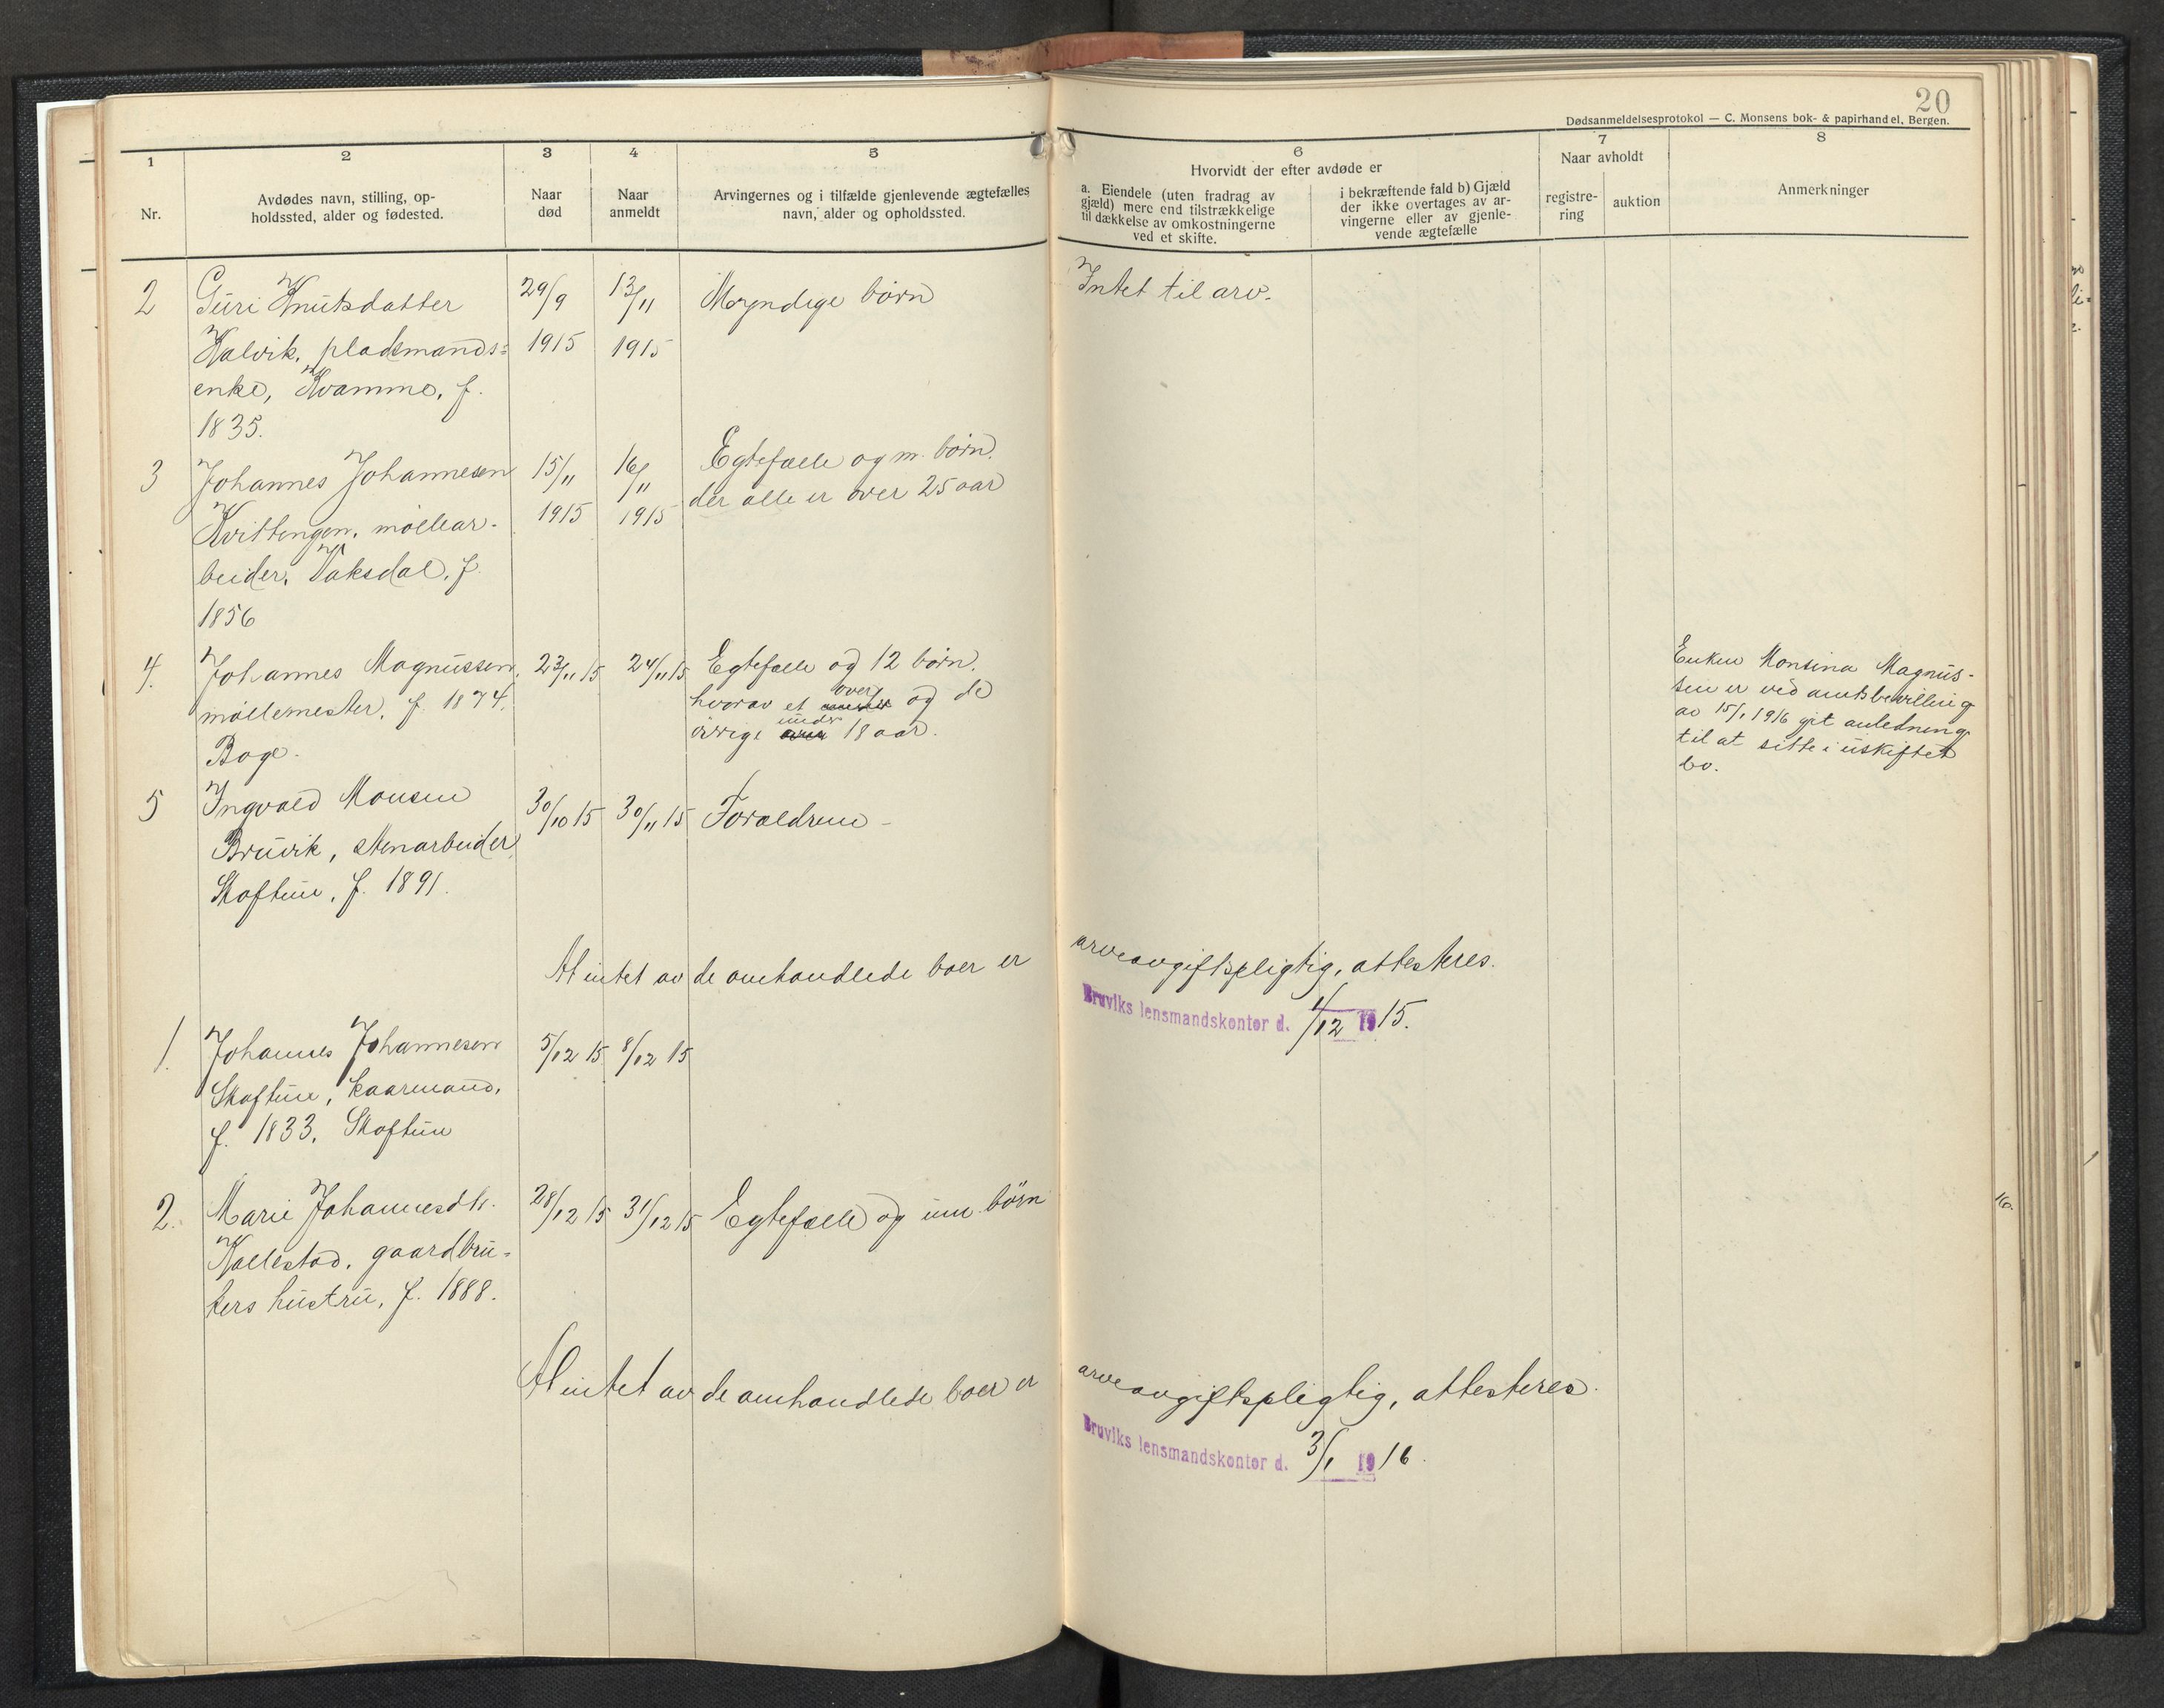 20
Dødsanmeldelsesprotokol — C. Monsens bok- & papirhandel, Bergen.
1
Nr.
2
Avdødes navn, stilling, op-
holdssted, alder og fødested.
3
Naar
død
4
Naar
anmeldt
5
Arvingernes og i tilfælde gjenlevende ægtefælles
navn, alder og opholdssted.
6
Hvorvidt der efter avdøde er
a. Eiendele (uten fradrag av
gjæld) mere end tilstrækkelige
til dækkelse av omkostningerne
ved et skifte.
i bekræftende fald b) Gjæld
der ikke overtages av ar-
vingerne eller av gjenle-
vende ægtefælle
7
Naar avholdt
registre-
ring
auktion
8
Anmerkninger
2 Guri Knutsdatter 29/9 13/11 Myndige børn Intet til arv.
Kalvik, pladsmands= 1915 1915
enke, Kvamme, f.
1835.
3 Johannes Johannesen 15/11 16/11 Egtefælle og m. børn,
Kvittengen, møllear- 1915 1915 der alle er over 25 aar
beider, Vaksdal, f.
1856
4. Johannes Magnussen, 23/11 15 24/11 15 Egtefælle og 12 børn,
møllemester, f. 1874, hvorav et over og de
Boge. øvrige under 18 aar.
Enken Monsina Magnus-
sen er ved amtsbevilling
av 15/1 1916 git anledning
til at sitte i uskiftet
bo.
5 Ingvald Monsen 30/10 15 30/11 15 Forældrene –
Bruvik, stenarbeider,
Skoftun, f. 1891.
At intet av de omhandlede boer er arveavgiftspligtig, attesteres.
Bruviks lensmandskontor d. 1/12 1915.
1. Johannes Johannesen 5/12 15 8/12 15
Skoftun, kaarmand,
f. 1833, Skoftun
2. Marie Johannesdtr. 28/12 15 31/12 15 Egtefælle og um. børn
Kallestad, gaardbru-
kers hustru, f. 1888.
At intet av de omhandlede boer er arveavgiftspligtig, attesteres.
Bruviks lensmandskontor d. 3/1 1916.